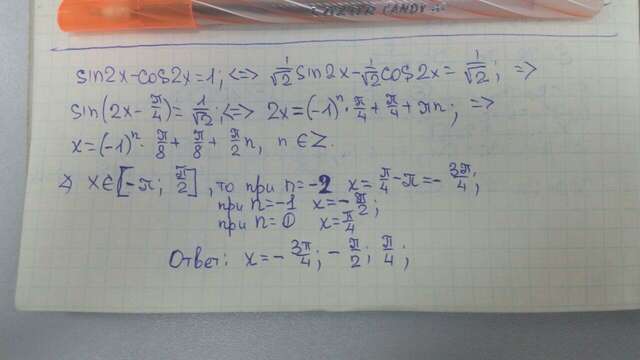 LASER CANDY
sin2x-cos2x=1; <=> 1/√2 sin2x - 1/√2 cos2x = 1/√2; =>
sin(2x - π/4) = 1/√2; <=> 2x = (-1)^n · π/4 + π/4 + πn; =>
x = (-1)^n · π/8 + π/8 + π/2 n, n ∈ Z.
x ∈ [-π; π/2], то при n = -2 x = π/4 - π = - 3π/4;
при n = -1 x = - π/2;
при n = 0 x = π/4
Ответ: x = - 3π/4; - π/2; π/4;